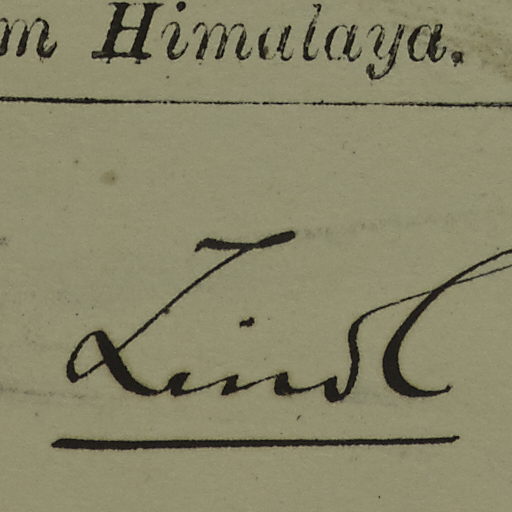 m Himalaya.
Lindl